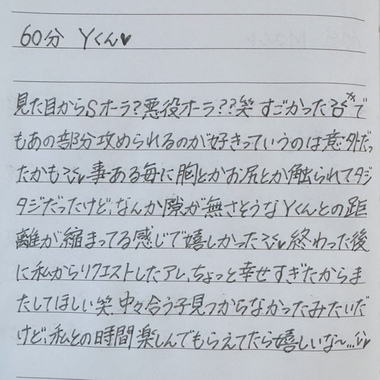 60分 Yくん♥
見た目からSオーラ?悪役オーラ??笑 すごかった で
もあの部分攻められるのが好きっていうのは意外だっ
たかも 事ある毎に胸とかお尻とか触られてタジ
タジだったけど、なんか隙が無さそうなYくんとの距
離が縮まってる感じで嬉しかった 終わった後
に私からリクエストしたアレ、ちょっと幸せすぎたからま
たしてほしい笑 中々合う子見つからなかったみたいだ
けど、私との時間楽しんでもらえてたら嬉しいな〜…